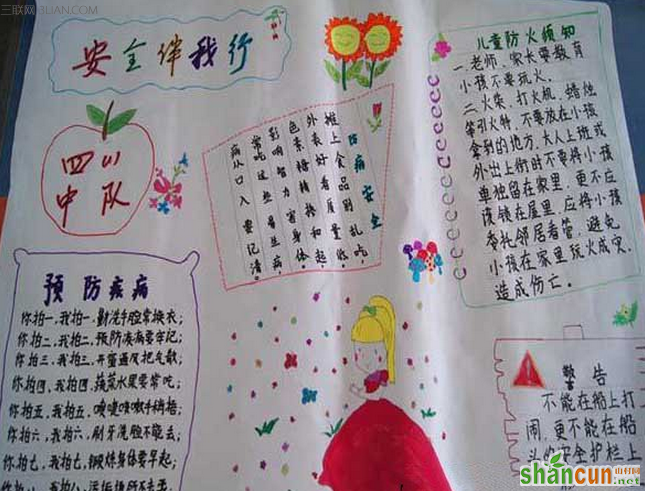 三联网 3LIAN.COM
安全伴我行
四(1)
中队
预防疾病
你拍一,我拍一,勤洗手脸常换衣;
你拍二,我拍二,预防疾病要牢记;
你拍三,我拍三,开窗通风把气散;
你拍四,我拍四,蔬菜水果要常吃;
你拍五,我拍五,
你拍六,我拍六,刷牙洗脸不能丢;
你拍七,我拍七,锻炼身体要早起;
你拍八,我拍八,
防病安全
摊上食品别乱吃
外表好看质量低
色素糖精掺和起
影响智力害身体
常吃这些易生病
病从口入要记清
儿童防火须知
一.老师、家长要教育
小孩不要玩火。
二.火柴、打火机、蜡烛
等引火物,不要放在小孩
拿到的地方,大人上班或
外出上街时不要将小孩
单独留在家里,更不应
该锁在屋里,应将小孩
委托邻居看管,避免
小孩在家里玩火成灾,
造成伤亡。
警告
不能在船上打
闹,更不能在船
头的安全护栏上
shancun
山村网
.net